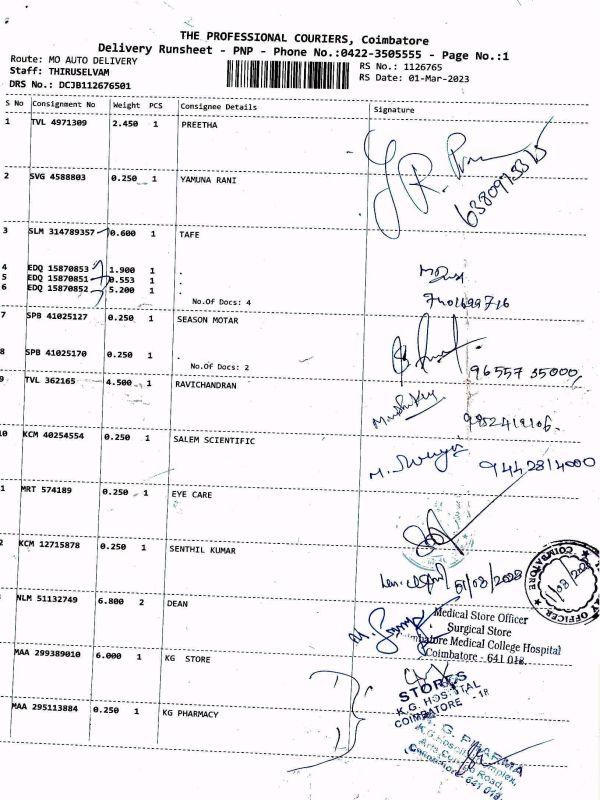 THE PROFESSIONAL COURIERS, Coimbatore
Delivery Runsheet - PNP - Phone No.:0422-3505555 - Page No.:1
Route: MO AUTO DELIVERY
RS No.: 1126765
Staff: THIRUSELVAM
RS Date: 01-Mar-2023
DRS No.: DCJB112676501
S No Consignment No Weight PCS Consignee Details Signature
1 TVL 4971309 2.450 1 PREETHA
2 SVG 4588803 0.250 1 YAMUNA RANI
3 SLM 314789357 0.600 1 TAFE
4 EDQ 15870853 1.900 1 .
5 EDQ 15870851 0.553 1 .
6 EDQ 15870852 5.200 1 .
No.Of Docs: 4
7401699716
7 SPB 41025127 0.250 1 SEASON MOTAR
8 SPB 41025170 0.250 1 .
No.Of Docs: 2
96557 35000
9 TVL 362165 4.500 1 RAVICHANDRAN
10 KCM 40254554 0.250 1 SALEM SCIENTIFIC
9442814000
1 MRT 574189 0.250 1 EYE CARE
2 KCM 12715878 0.250 1 SENTHIL KUMAR
01/03/2023
COIMBATORE
NLM 51132749 6.800 2 DEAN
Medical Store Officer
Surgical Store
mbatore Medical College Hospital
Coimbatore - 641 018.
MAA 299389010 6.000 1 KG STORE
STORES
K.G. HOSPITAL
COIMBATORE - 18
MAA 295113884 0.250 1 KG PHARMACY
K.G. PHARMA
K.G. Hospital Complex,
Arts College Road,
Coimbatore - 641 018.